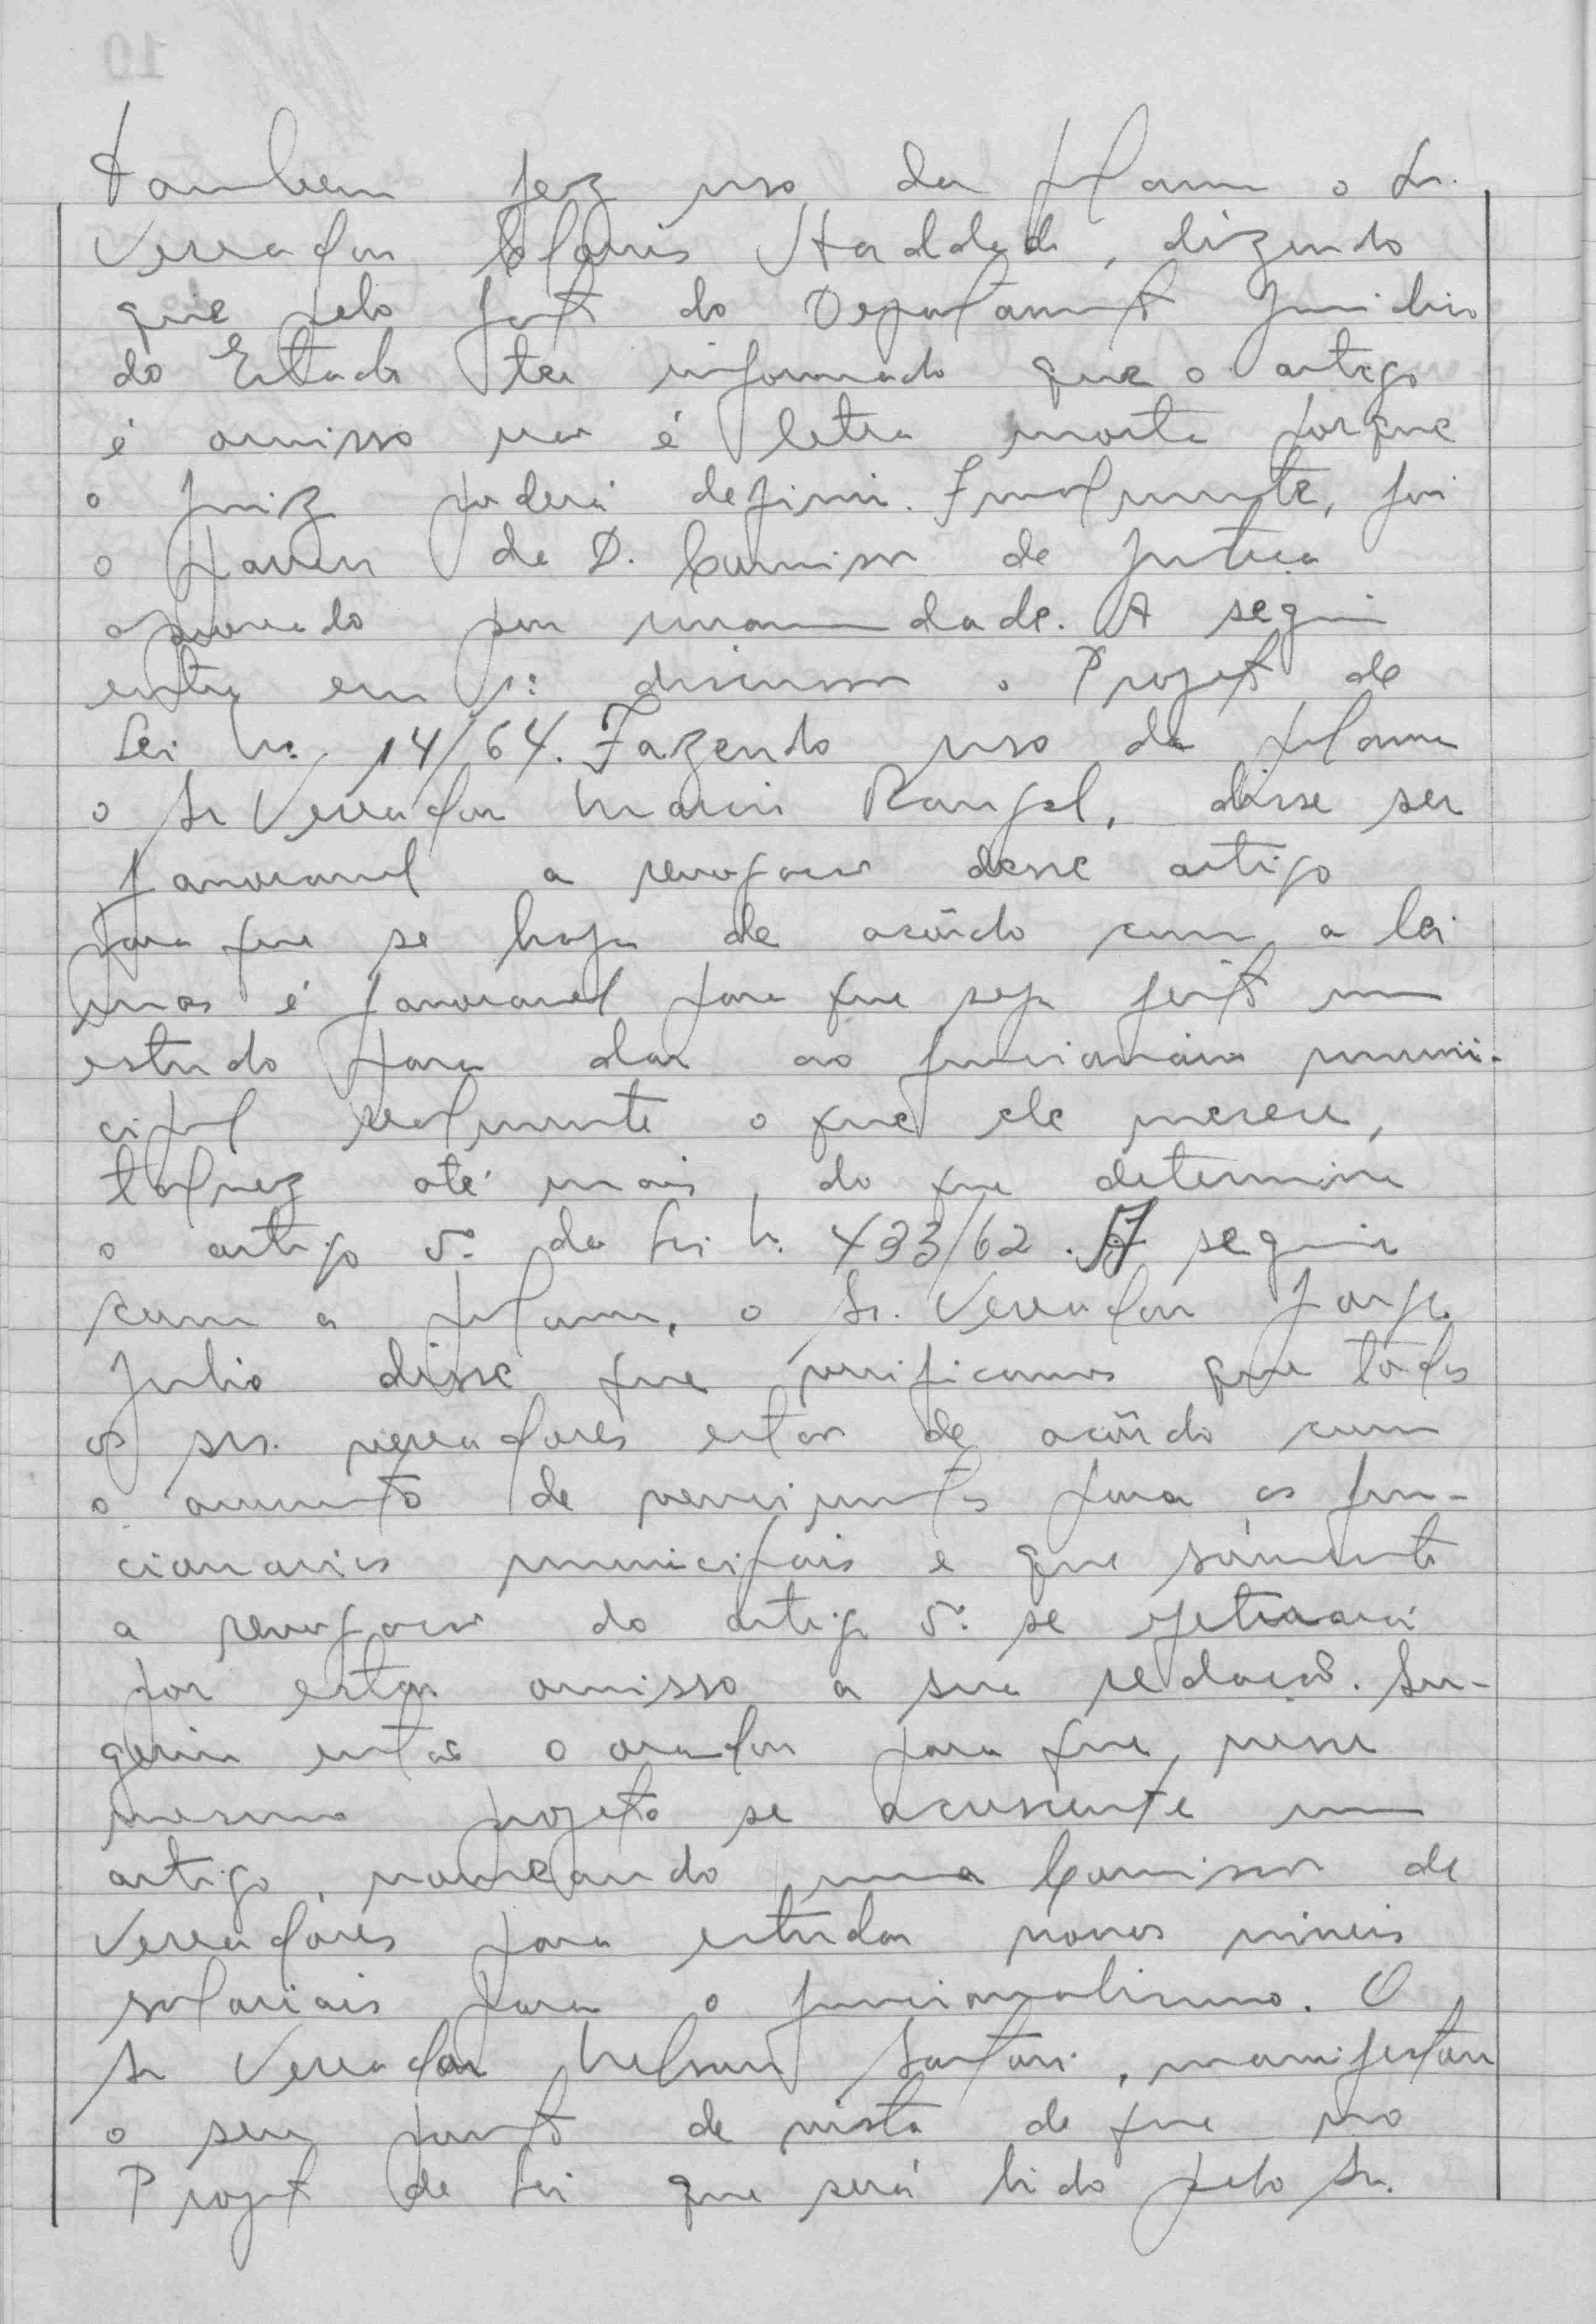 tambem fez uso da palavra o Sr.
Vereador Clovis Haddad, dizendo
que pelo fato do Departamento Juridico
do Estado ter informado que o artigo
é omisso não é letra morta porque
o juiz poderá definir. Finalmente, foi
o parecer da D. Comissão de Justiça
aprovado por unanimidade. A seguir
entra em 1ª discussão o Projeto de
Lei Nº 14/64. Fazendo uso da palavra
o Sr Vereador Mario Rangel, disse ser
favoravel a revogação desse artigo
para que se haja de acôrdo com a lei
mas é favoravel para que seja feito um
estudo para dar ao funcionário muni-
cipal realmente o que ele merece,
talvez até mais, do que determina
o artigo 5º da Lei N. 433/62. A seguir
com a palavra, o Sr. Vereador Jorge
Julio disse que verificamos que todos
os srs. vereadores estão de acôrdo com
o aumento de vencimentos para os fun-
cionarios municipais e que sómente
a revogação do artigo 5º se efetuará
por estar omisso a sua redação. Su-
geriu então o orador para que, nesse
mesmo projeto se acrescente um
artigo, nomeando uma Comissão de
Vereadores para estudar novos niveis
salariais para o funcionalismo. O
Sr Vereador Nelson Santori, manifestou
o seu ponto de vista de que no
Projeto de Lei que será lido pelo Sr.